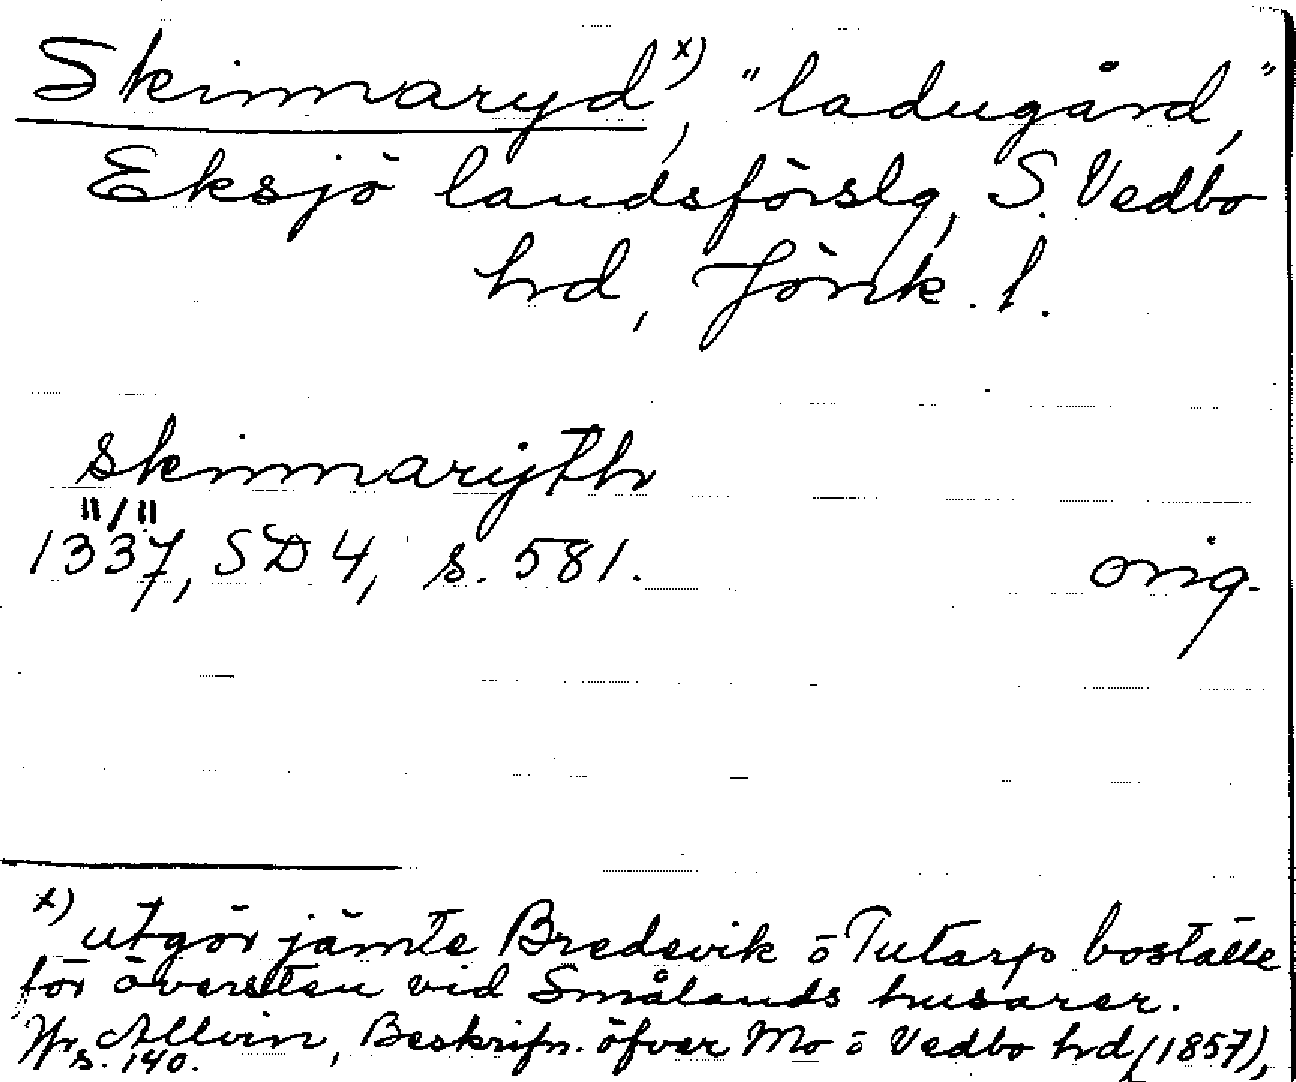 Skinnaryd x), "ladugård,"
Eksjö landsförslg, S. Vedbo
hrd, Jönk. l.
skinnarijth
11/11
1337, SD 4, s. 581. orig.
x) utgör jämte Bredevik o Tutarp boställe
för översten vid Smålands husarer.
Jfr Allvin, Beskrifn. öfver Mo o Vedbo hrd (1857),
s. 140.